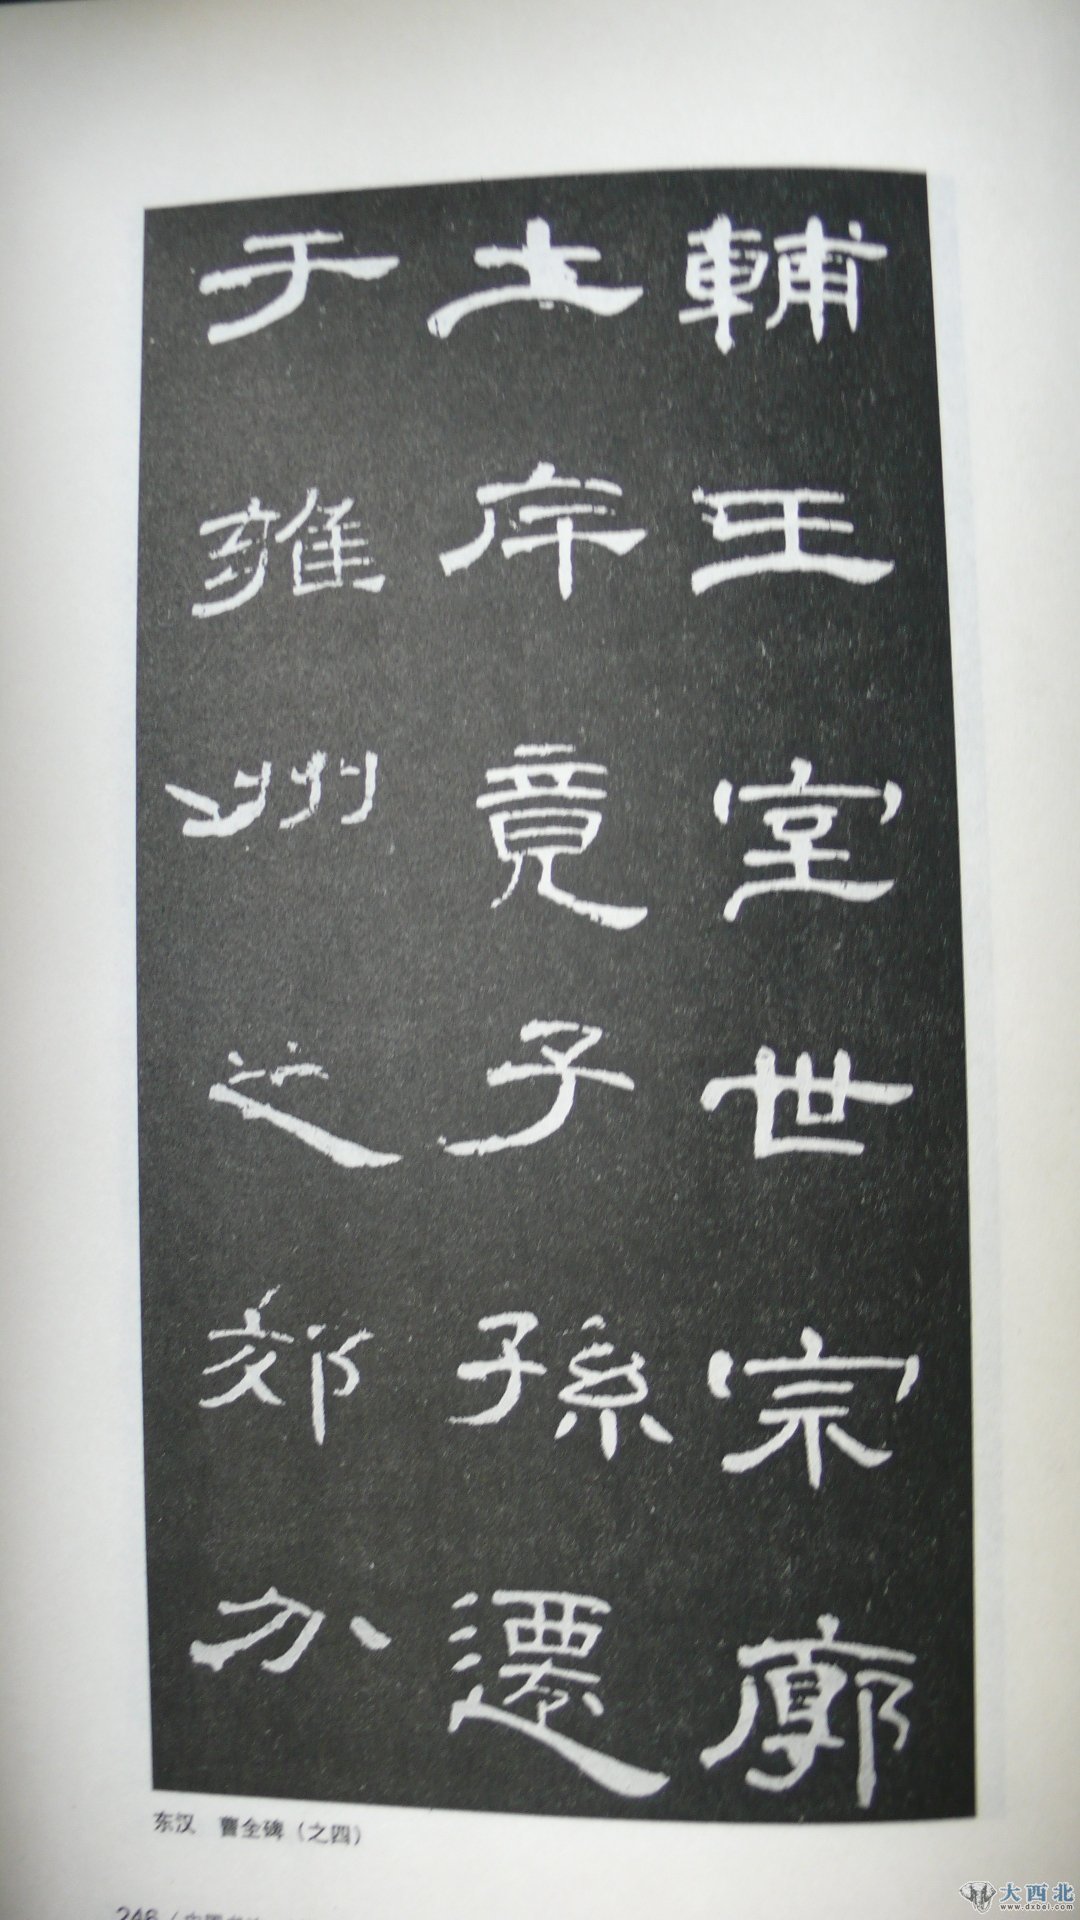 輔王室世宗廓
土斥竟子孫遷
于雍州之郊分
东汉 曹全碑（之四）
246
大西北
www.dxbei.com